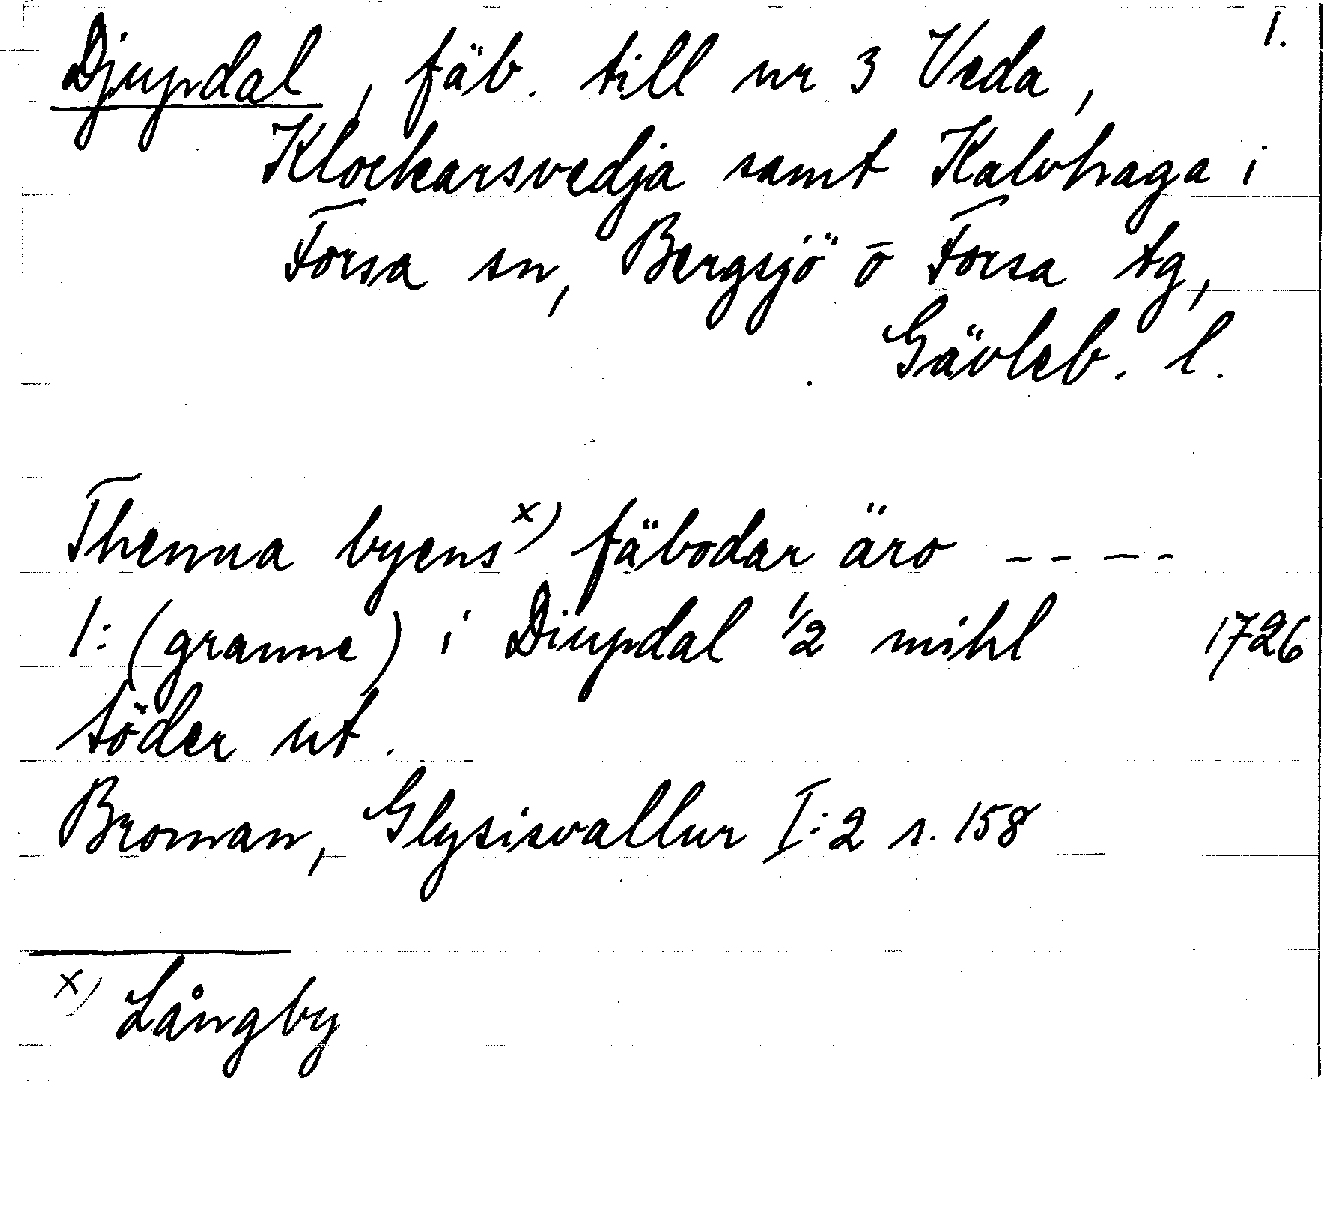 1.
Djupdal, fäb. till nr 3 Veda,
Klockarsvedja samt Kalvhaga i
Forsa sn, Bergsjö o Forsa tg,
Gävleb. l.
Thenna byens x) fäbodar äro - - - -
1: (granne) i Diupdal 1/2 mihl 1726
söder ut.
Broman, Glysisvallur I:2 s. 158
x) Långby